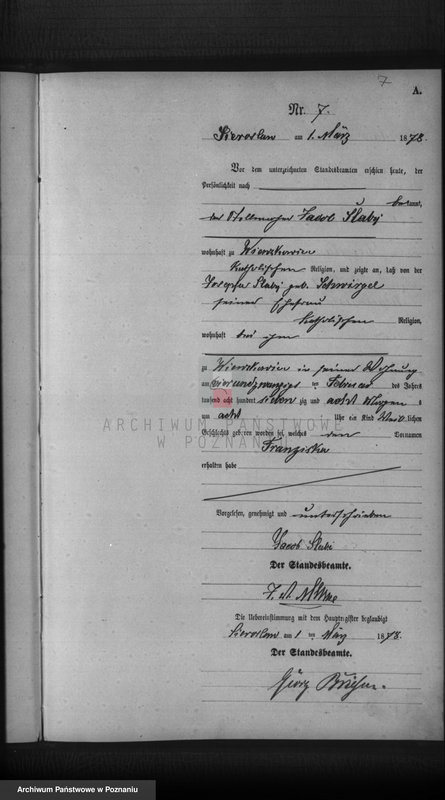 7
A.
Nr. 7.
Sieroslaw am 1. März 1878.
Vor dem unterzeichneten Standesbeamten erschien heute, der
Persönlichkeit nach
bekannt,
der Stellmacher Jacob Slaby
wohnhaft zu Wierzkowice
katholischen Religion, und zeigte an, daß von der
Josepha Slaby geb. Schwirgel
seiner Ehefrau
katholischen Religion,
wohnhaft bei ihm
zu in seiner Wohnung
am vierundzwanzigsten ten Februar des Jahres
tausend acht hundert sieben zig und acht
um acht Uhr ein Kind weib lichen
Geschlechts geboren worden sei, welches den Vornamen
Franziska
erhalten habe
Vorgelesen, genehmigt und unterschrieben
Jacob Slabi
Der Standesbeamte.
Die Uebereinstimmung mit dem Hauptregister beglaubigt
Sieroslaw am 1 ten März 1878.
Der Standesbeamte.
Georg
ARCHIWUM PAŃSTWOWE
W POZNANIU
Archiwum Państwowe w Poznaniu